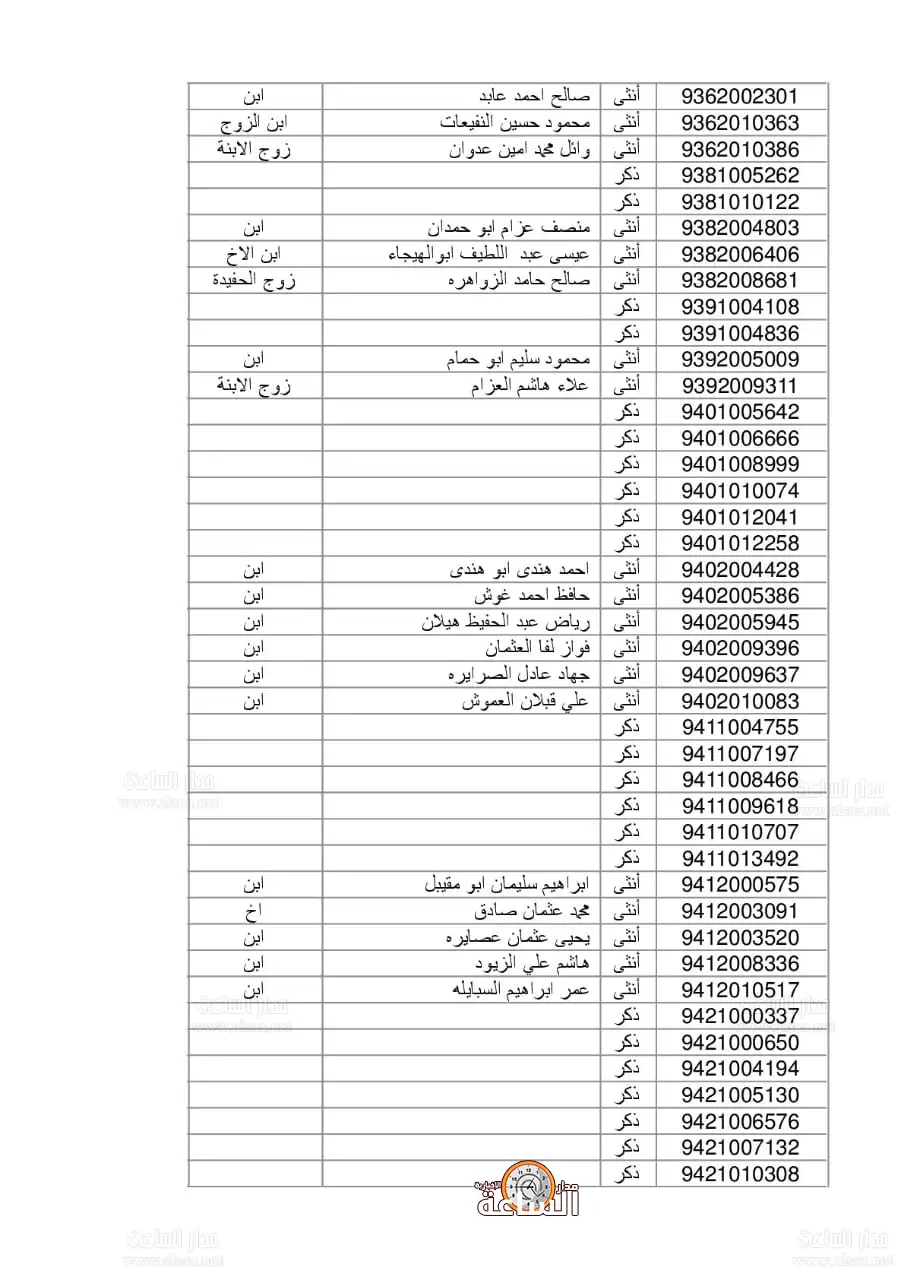 9362002301 أنثى صالح احمد عابد ابن
9362010363 أنثى محمود حسين النفيعات ابن الزوج
9362010386 أنثى وائل محمد امين عدوان زوج الابنة
9381005262 ذكر
9381010122 ذكر
9382004803 أنثى منصف عزام ابو حمدان ابن
9382006406 أنثى عيسى عبد اللطيف ابوالهيجاء ابن الاخ
9382008681 أنثى صالح حامد الزواهره زوج الحفيدة
9391004108 ذكر
9391004836 ذكر
9392005009 أنثى محمود سليم ابو حمام ابن
9392009311 أنثى علاء هاشم العزام زوج الابنة
9401005642 ذكر
9401006666 ذكر
9401008999 ذكر
9401010074 ذكر
9401012041 ذكر
9401012258 ذكر
9402004428 أنثى احمد هندى ابو هندى ابن
9402005386 أنثى حافظ احمد غوش ابن
9402005945 أنثى رياض عبد الحفيظ هيلان ابن
9402009396 أنثى فواز لفا العثمان ابن
9402009637 أنثى جهاد عادل الصرايره ابن
9402010083 أنثى علي قبلان العموش ابن
9411004755 ذكر
9411007197 ذكر
9411008466 ذكر
9411009618 ذكر
9411010707 ذكر
9411013492 ذكر
9412000575 أنثى ابراهيم سليمان ابو مقيبل ابن
9412003091 أنثى محمد عثمان صادق اخ
9412003520 أنثى يحيى عثمان عصايره ابن
9412008336 أنثى هاشم علي الزيود ابن
9412010517 أنثى عمر ابراهيم السبايله ابن
9421000337 ذكر
9421000650 ذكر
9421004194 ذكر
9421005130 ذكر
9421006576 ذكر
9421007132 ذكر
9421010308 ذكر
مدار الساعة الإخبارية
مدار الساعة
www.alsaa.net
مدار الساعة
www.alsaa.net
مدار الساعة
www.alsaa.net
مدار الساعة
www.alsaa.net
مدار الساعة
www.alsaa.net
مدار الساعة
www.alsaa.net